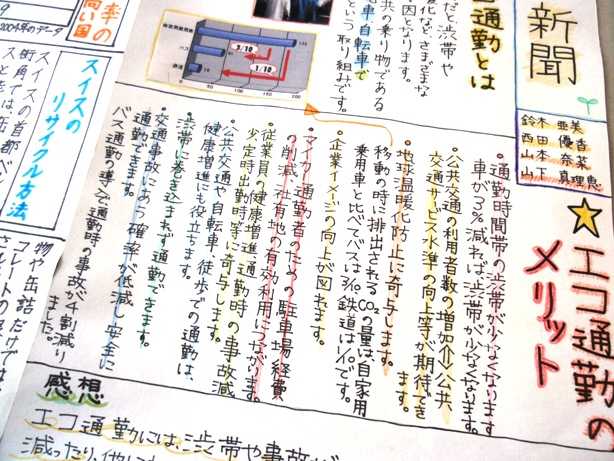 新聞
鈴木 亜美
西田 優香
山本 奈菜
山下 真理恵
☆エコ通勤の
メリット
・通勤時間帯の渋帯が少なくなります
車が3%減れば、渋帯が少なくなります。
・公共交通の利用者数の増加⇔公共
交通サービス水準の向上等が期待でき
ます。
・地球温暖化防止に寄与します。
移動の時に排出されるCO2の量は自家用
乗用車と比べてバスは3/10、鉄道は1/10です。
・企業イメージの向上が図れます。
・マイカー通勤者のための駐車場経費
の削減、社有地の有効利用につながります。
・従業員の健康増進、通勤時の事故減
少、定時出勤時等に寄与します。
・公共交通や自転車、徒歩での通勤は、
健康増進にも役立ちます。
・渋帯に巻き込まれず通勤できます。
・交通事故にあう確率が低減し安全に
通勤できます。
バス通勤の導入で通勤時の事故が4割減り
ました。
エコ通勤とは
だと渋帯や
変化など、さまざまな
因となります。
共の乗り物である
車、自転車で
という取り組みです。
3/10
1/10
バス
鉄道
0
50
100
150
200
感想
エコ通勤には、渋帯や事故が
減ったり、他にも
高い国
2004年のデータ
スイスの
リサイクル方法
スイスの首都ベ
街角では、缶
物や缶詰だけでは